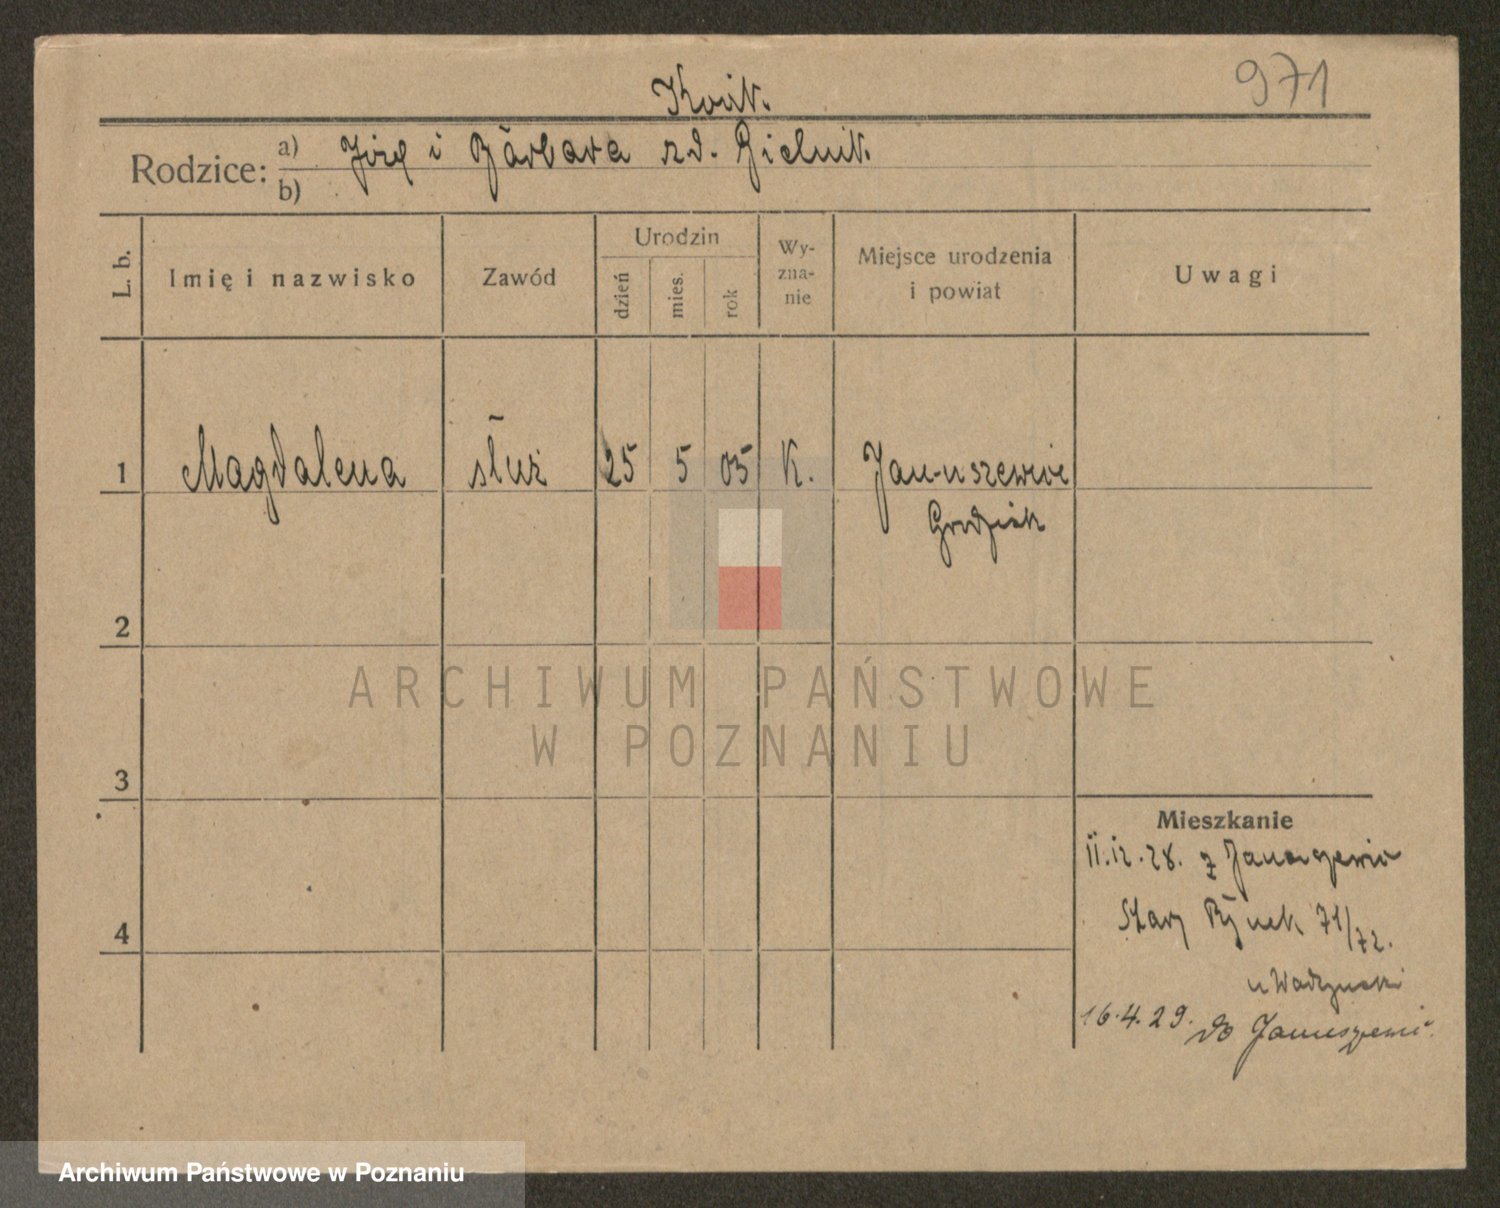 971
Konik.
Rodzice: a) Józef i Barbara z d. Bielnik.
b)
L. b.
Imię i nazwisko
Zawód
Urodzin
dzień
mies.
rok
Wy-
zna-
nie
Miejsce urodzenia
i powiat
Uwagi
1 Magdalena służ 25 5 05 K. Januszewice
Grodzisk
2
3
4
Mieszkanie
11.12.28. z
Stary Rynek 71/72.
u
16.4.29. do
ARCHIWUM PAŃSTWOWE
W POZNANIU
Archiwum Państwowe w Poznaniu